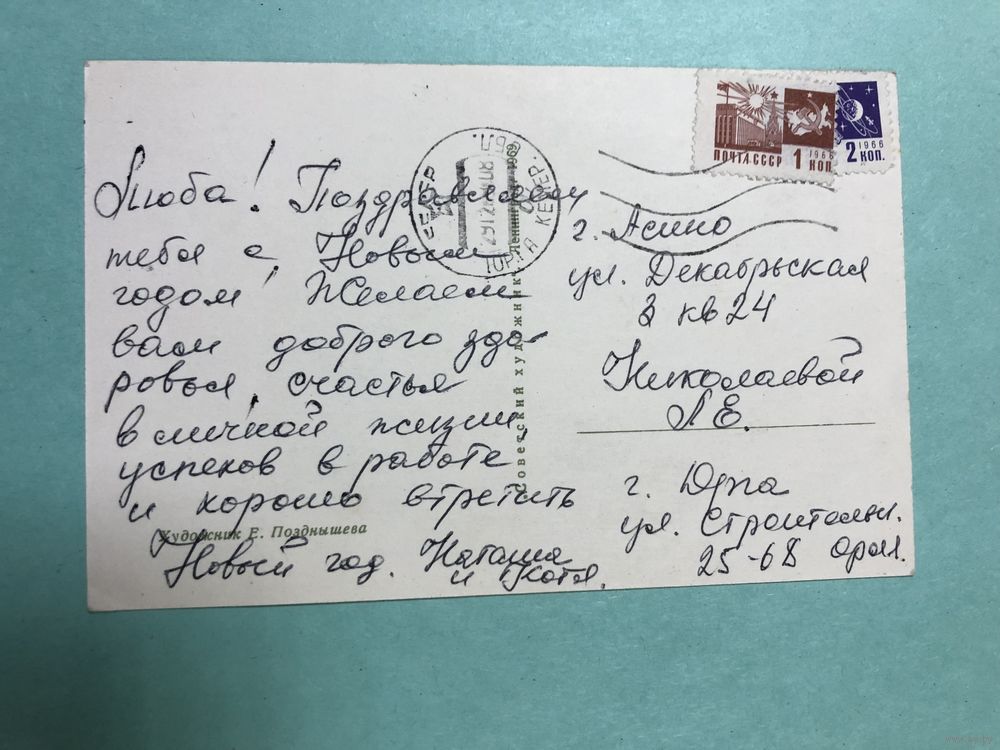 Люба! Поздравляем
тебя с Новым
годом! Желаем
вам доброго здо-
ровья, счастья
в личной жизни,
успехов в работе
и хорошо втретить
Новый год. Наташа
и Котя.
Художник Е. Позднышева
Советский художник. Ленинград 1969
СССР
ЮРГА КЕМЕР. ОБЛ.
ПОЧТА СССР 1966 1 КОП
1966 2 КОП.
г. Асино
ул. Декабрьская
3 кв 24
Николаевой
Л.Е.
г. Юрга
ул. Строительн.
25-68